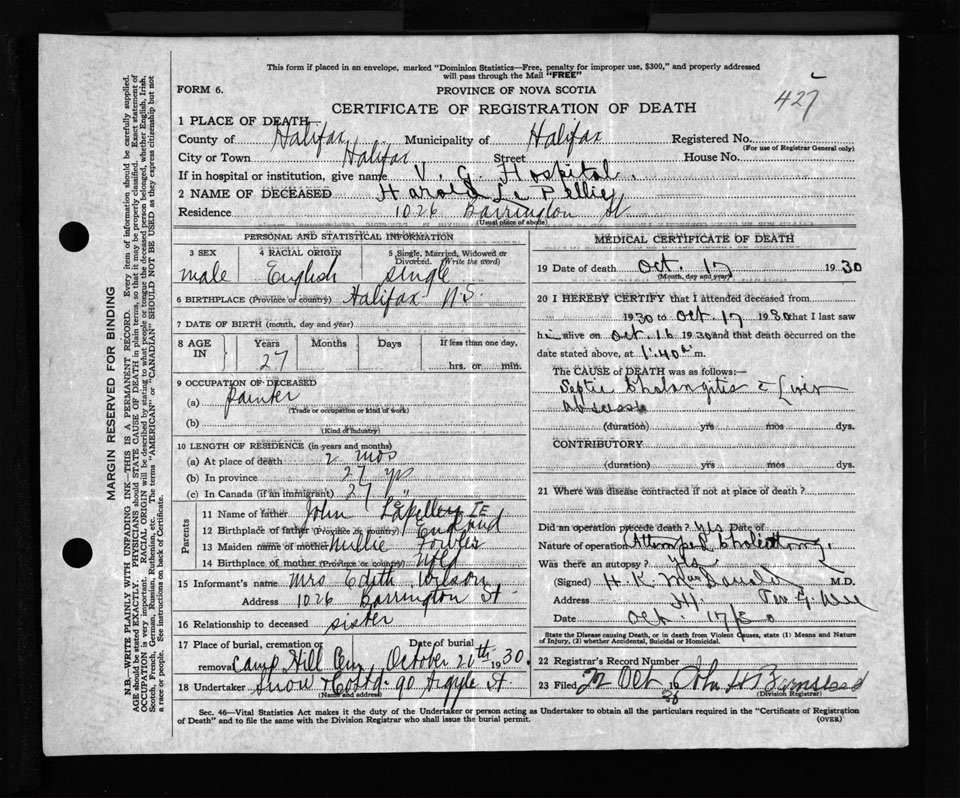 This form if placed in an envelope, marked "Dominion Statistics—Free, penalty for improper use, $300," and properly addressed
will pass through the Mail "FREE"
FORM 6.
PROVINCE OF NOVA SCOTIA
427
CERTIFICATE OF REGISTRATION OF DEATH
1 PLACE OF DEATH
County of Halifax Municipality of Halifax Registered No.
(For use of Registrar General only)
City or Town Halifax Street House No.
If in hospital or institution, give name V. G. Hospital.
2 NAME OF DECEASED Harold Le Pellie
Residence 1026 Barrington St
(Usual place of abode)
PERSONAL AND STATISTICAL INFORMATION
3 SEX 4 RACIAL ORIGIN 5 Single, Married, Widowed or Divorced. (Write the word)
male English single
6 BIRTHPLACE (Province or country) Halifax N.S.
7 DATE OF BIRTH (month, day and year)
8 AGE IN Years Months Days If less than one day,
27 hrs. or min.
9 OCCUPATION OF DECEASED
(a) Painter
(Trade or occupation or kind of work)
(b)
(Kind of industry)
10 LENGTH OF RESIDENCE (in years and months)
(a) At place of death 2 mos
(b) In province 27 yrs
(c) In Canada (if an immigrant) 27 "
Parents
11 Name of father John
12 Birthplace of father (Province or country) England
13 Maiden name of mother Millie
14 Birthplace of mother (Province or country) Nfld
15 Informant's name Mrs Edith Wilson
Address 1026 Barrington St.
16 Relationship to deceased sister
17 Place of burial, cremation or Date of burial
removal Camp Hill Cem, October 20th 1930.
18 Undertaker Snow & Co Ltd. 90 Argyle St.
(Name and address)
MEDICAL CERTIFICATE OF DEATH
19 Date of death Oct. 17 1930
(Month, day and year)
20 I HEREBY CERTIFY that I attended deceased from
1930 to Oct. 17 1930 that I last saw
him alive on Oct. 16 1930 and that death occurred on the
date stated above, at 1.40 a m.
The CAUSE of DEATH was as follows:—
Septic Cholangitis Liver
abscess
(duration) yrs mos dys.
CONTRIBUTORY
(duration) yrs mos dys.
21 Where was disease contracted if not at place of death?
Did an operation precede death? yes Date of
Nature of operation
Was there an autopsy? yes
(Signed) H. K. MacDonald M.D.
Address
Date Oct. 17/30
State the Disease causing Death, or in death from Violent Causes, state (1) Means and Nature
of Injury, (2) whether Accidental, Suicidal or Homicidal.
22 Registrar's Record Number
23 Filed 22 Oct 1930 John H Barnstead
(Division Registrar)
Sec. 46—Vital Statistics Act makes it the duty of the Undertaker or person acting as Undertaker to obtain all the particulars required in the "Certificate of Registration
of Death" and to file the same with the Division Registrar who shall issue the burial permit.
(OVER)
MARGIN RESERVED FOR BINDING
N.B.—WRITE PLAINLY WITH UNFADING INK—THIS IS A PERMANENT RECORD. Every item of information should be carefully supplied.
AGE should be stated EXACTLY. PHYSICIANS should STATE CAUSE OF DEATH in plain terms, so that it may be properly classified. Exact statement of
OCCUPATION is very important. RACIAL ORIGIN will be described by stating to what people or tongue the deceased person belonged, whether English, Irish,
Scotch, French, German, Russian, Ruthenian, etc. The terms "AMERICAN" or "CANADIAN" SHOULD NOT BE USED as they express citizenship but not
a race or people. See instructions on back of Certificate.